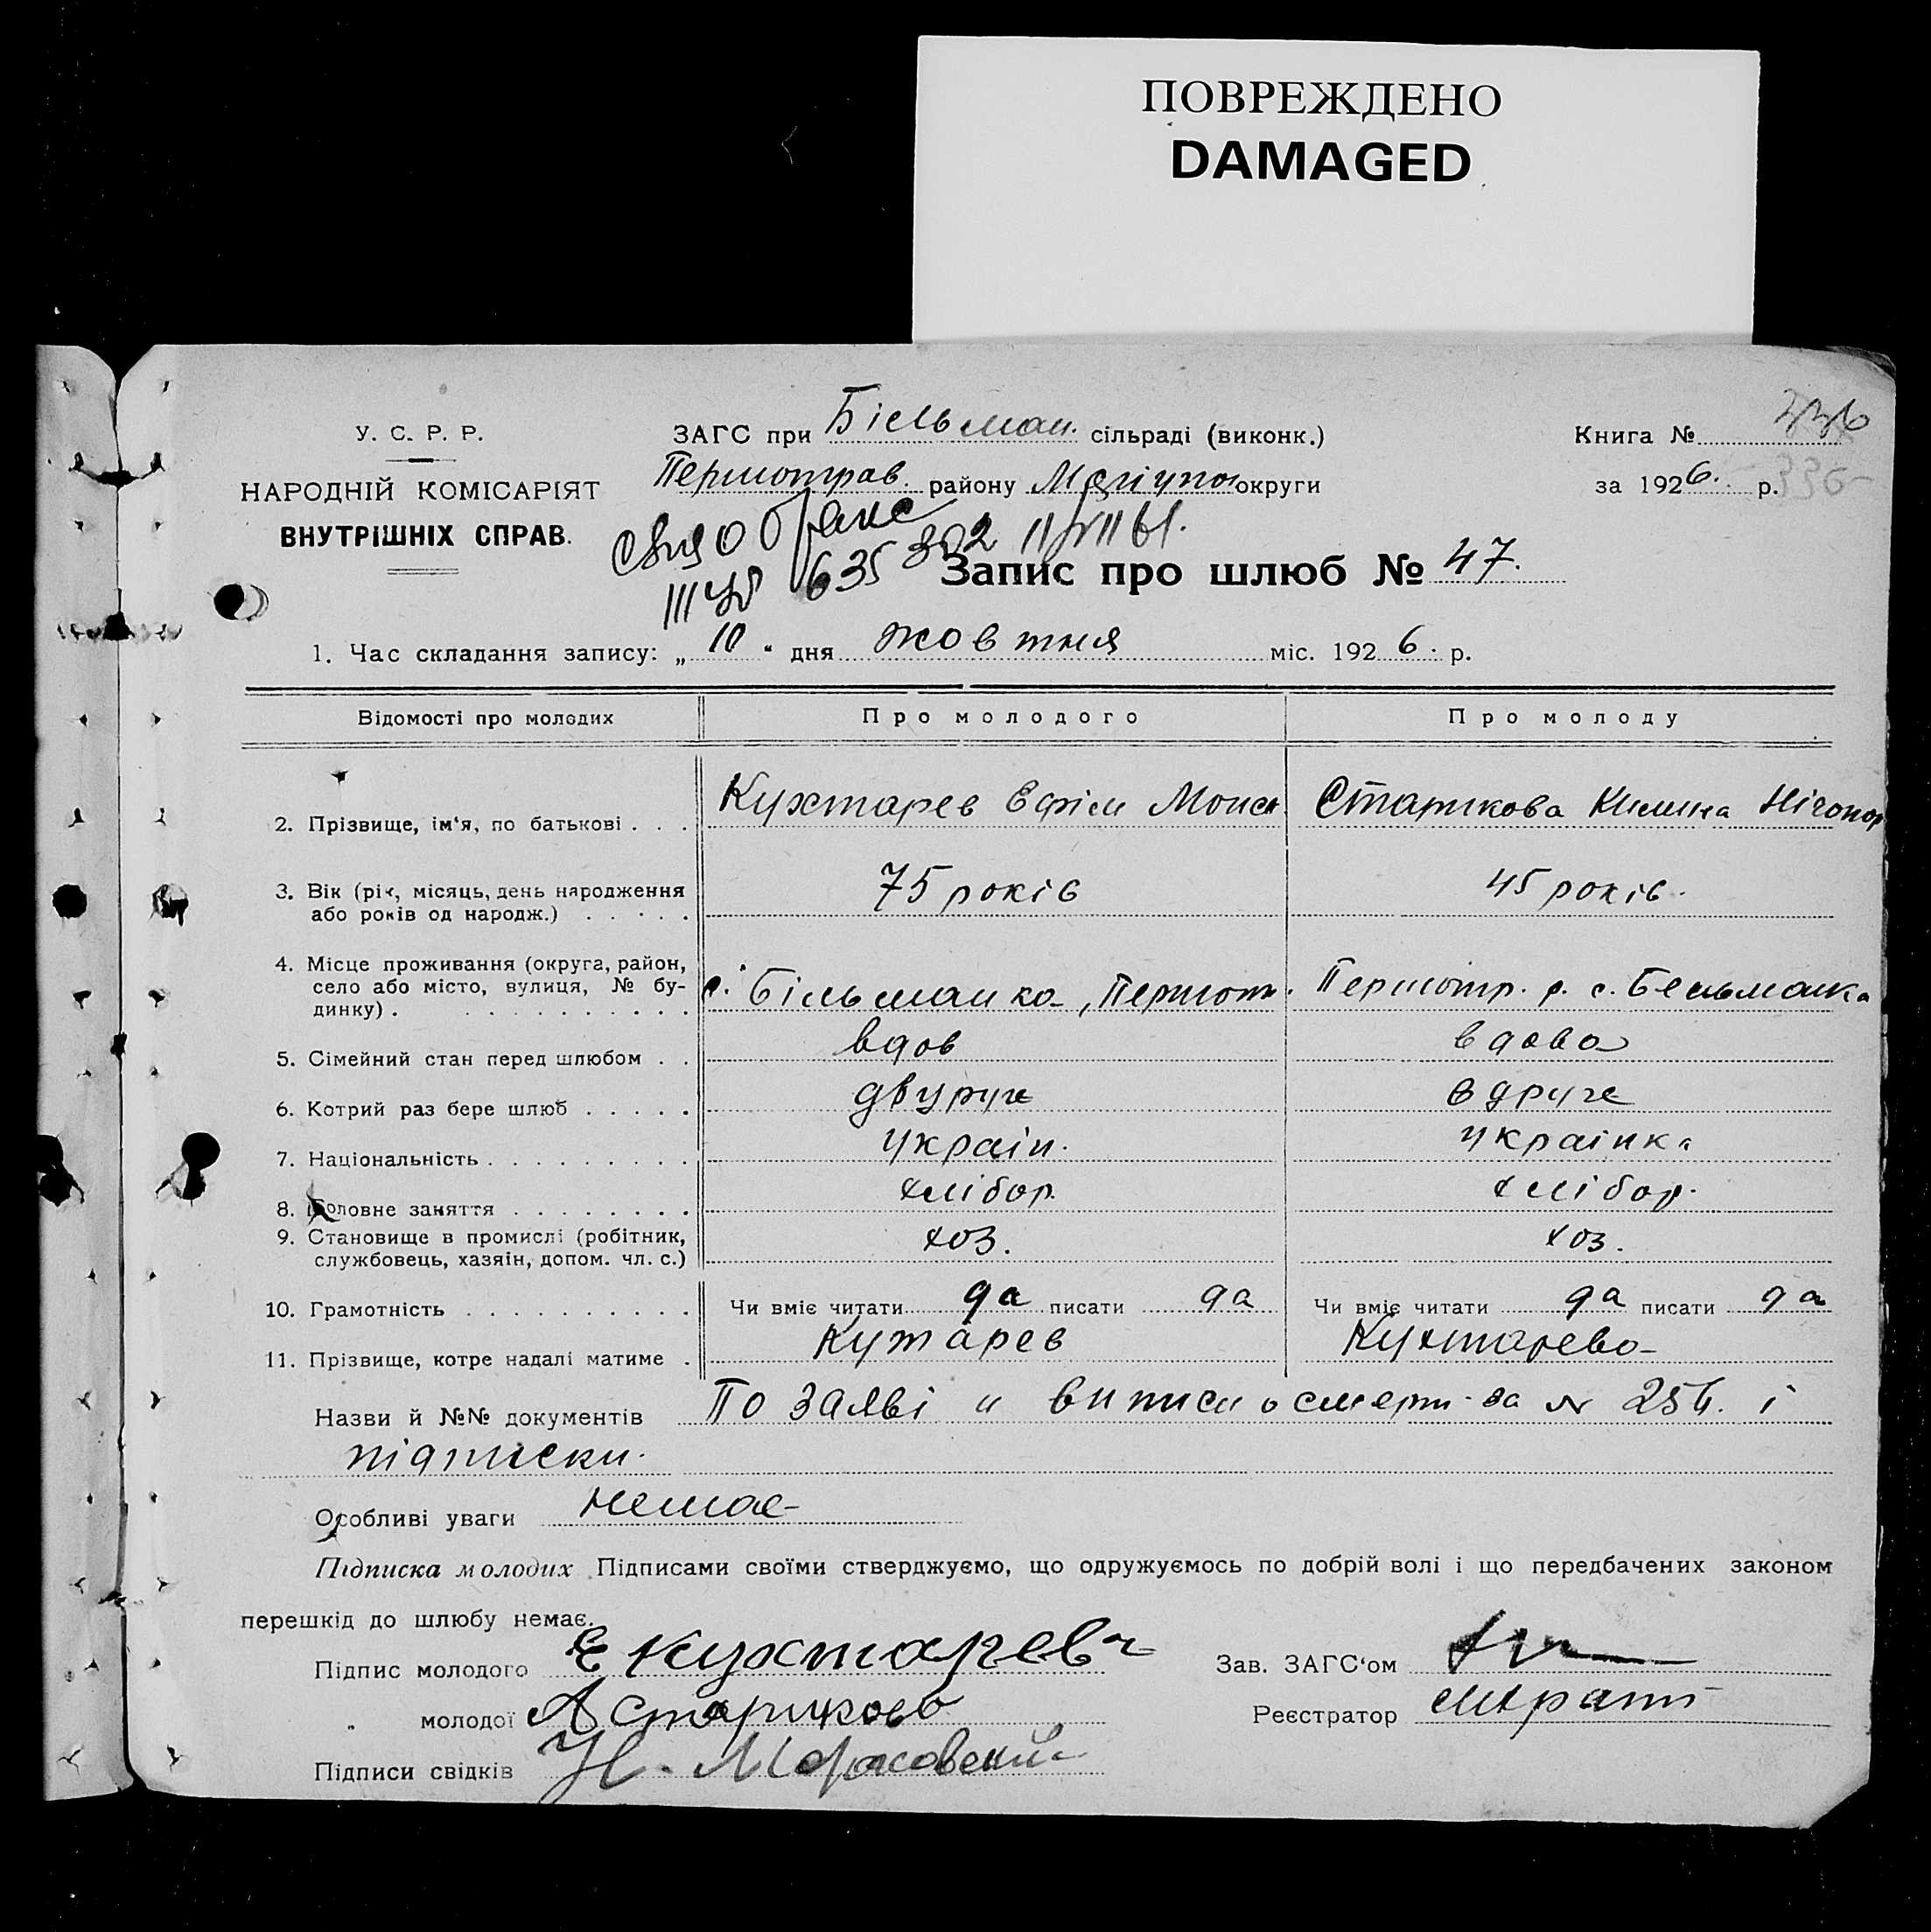 ПОВРЕЖДЕНО
DAMAGED
У. С. Р. Р.
НАРОДНІЙ КОМІСАРІЯТ
ВНУТРІШНІХ СПРАВ.
ЗАГС при Більман. сільраді (виконк.)
района Маріупол округи
Книга № 336
за 1926. р. 336
Свид о браке
III 635302 11/VII 61.
Запис про шлюб № 47.
1. Час складання запису: „ 10 " дня жовтня міс. 1926. р.
Відомості про молодих Про молодого Про молоду
2. Прізвище, ім'я, по батькові . . . Кухтарев Ефім Моис. Старикова Килина Нічопор
3. Вік (рік, місяць, день народження або років од народж.) . . . . . 75 років 45 років.
4. Місце проживання (округа, район, село або місто, вулиця, № будинку) . . . . . . . . . . . с. Більманка, Першотр. Першотр. р. с. Бельманка
5. Сімейний стан перед шлюбом . . вдов вдова
6. Котрий раз бере шлюб . . . . . двуруче вдруге
7. Національність . . . . . . . . . україн. українка
8. Головне заняття . . . . . . . . хлібор. хлібор.
9. Становище в промислі (робітник, службовець, хазяїн, допом. чл. с.) хоз. хоз.
10. Грамотність . . . . . . . . . . Чи вміє читати да писати да Чи вміє читати да писати да
11. Прізвище, котре надалі матиме . Кутарев Кухтарева
Назви й №№ документів По заяві и виписи о смерти за № 256. і
підписки.
Особливі уваги немає
Підписка молодих Підписами своїми стверджуємо, що одружуємось по добрій волі і що передбачених законом
перешкід до шлюбу немає.
Підпис молодого Е Кухтаревъ
Зав. ЗАГС'ом
„ молодої А Старикова
Реєстратор
Підписи свідків Н.